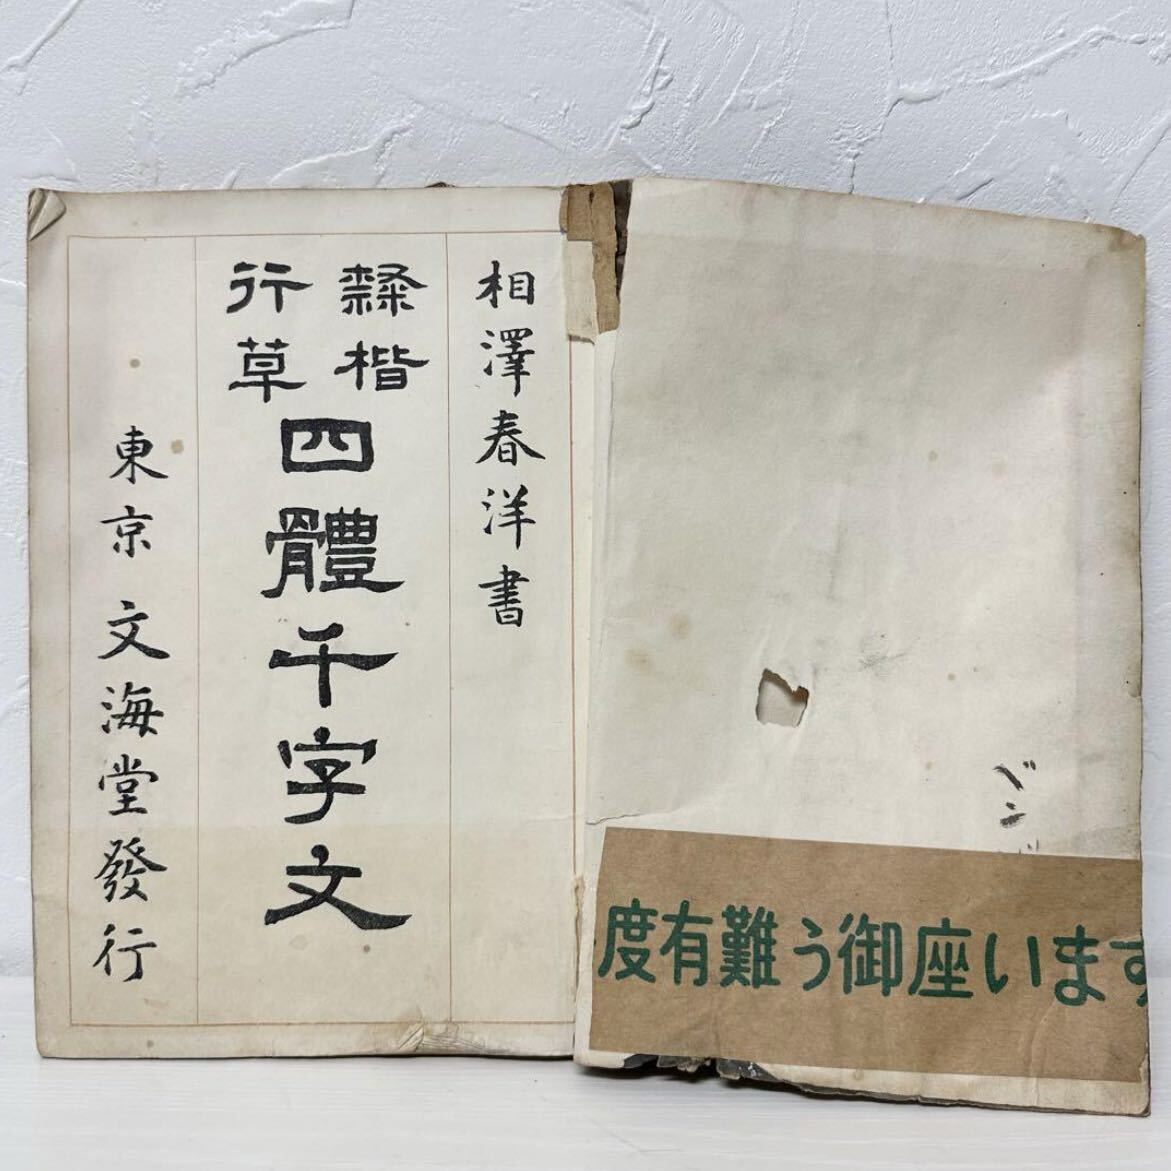 相澤春洋書
隸楷
行草
四體千字文
東京 文海堂發行
度有難う御座います